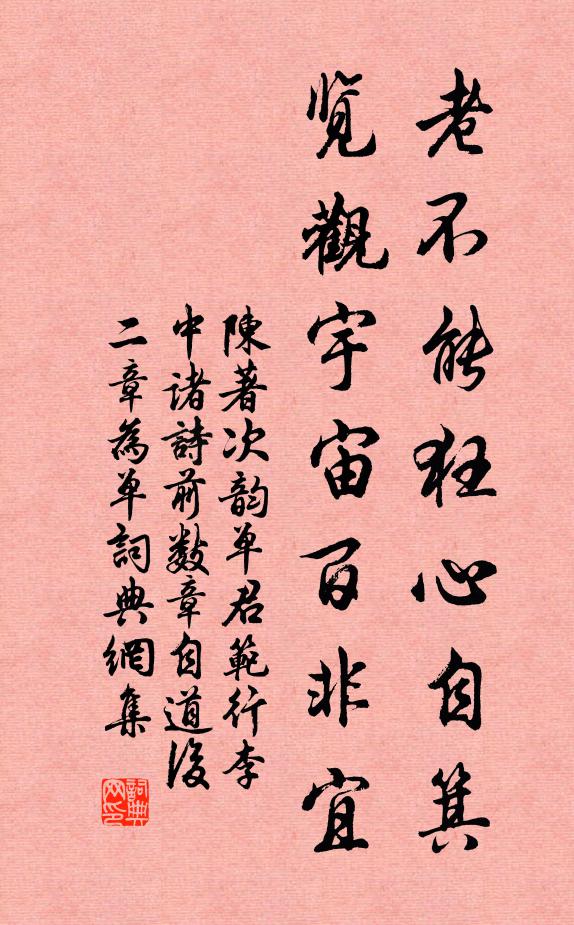 老不能狂心自箕
览觀宇宙百非宜
陳著次韵单君範行李
中诸詩前数章自道後
二章為单詞典網集
詞典网印